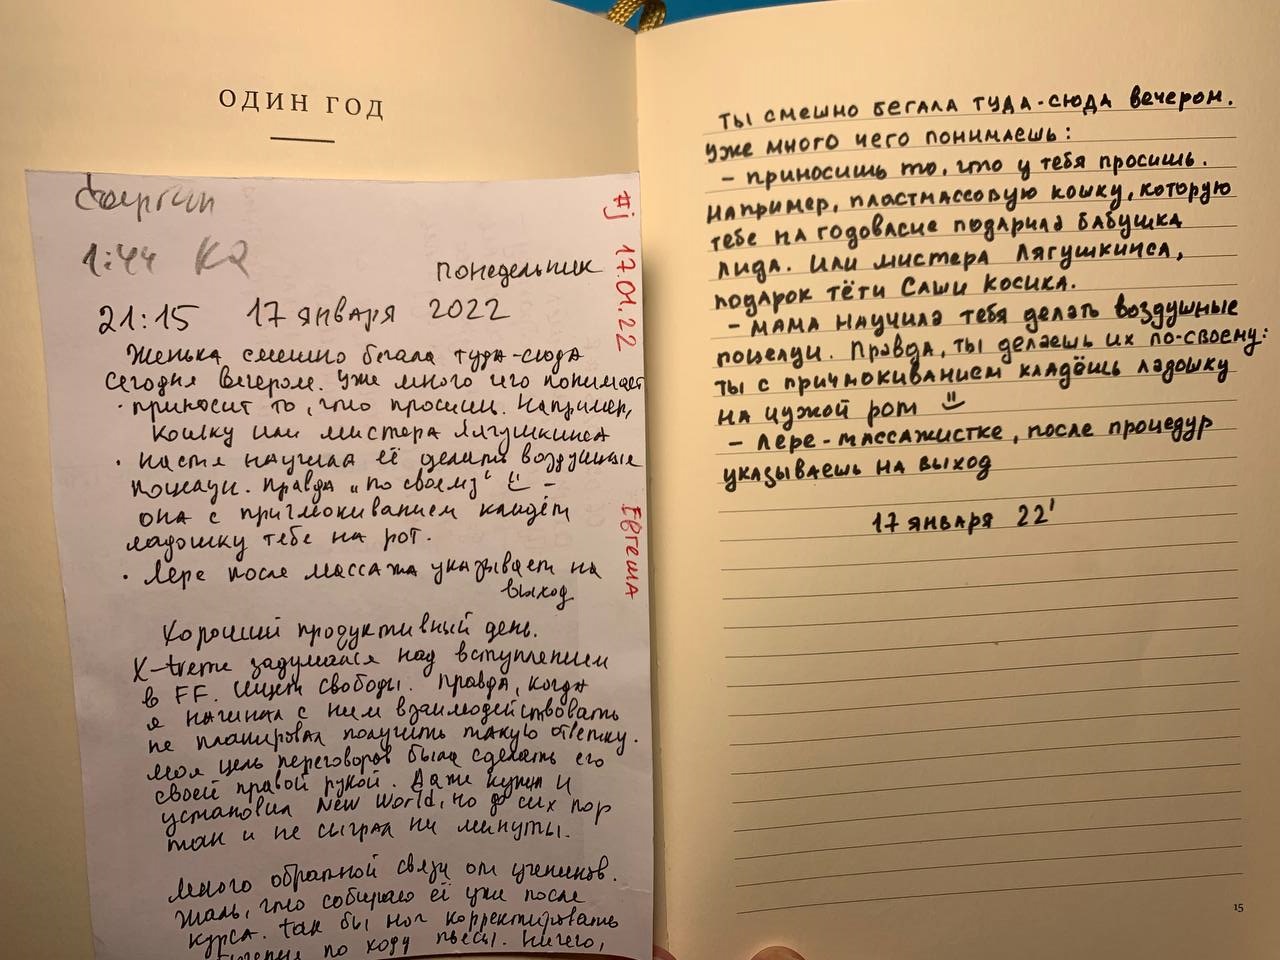 ОДИН ГОД
1:44
#j 17.01.22
Евгеша
понедельник
21:15 17 января 2022
Женька смешно бегала туда-сюда
сегодня вечером. Уже много чего понимает
· приносит то, что просишь. Например,
кошку или мистера Лягушкинса
· Настя научила её делать воздушные
поцелуи. Правда „по своему“ –
она с причмокиванием кладёт
ладошку тебе на рот.
· Лере после массажа указывает на
выход
Хороший продуктивный день.
X-treme задумался над вступлением
в FF. Ищет свободы. Правда, когда
я начинал с ним взаимодействовать
не планировал получить такую ответку.
Моя цель переговоров была сделать его
своей правой рукой. Даже купил и
установил New World, но до сих пор
так и не сыграл ни минуты.
Много обратной связи от учеников.
Жаль, что собираю её уже после
курса. Так бы мог корректировать
по ходу пьесы. Ничего,
Ты смешно бегала туда-сюда вечером.
Уже много чего понимаешь:
– приносишь то, что у тебя просишь.
Например, пластмассовую кошку, которую
тебе на годовасие подарила бабушка
Лида. Или мистера Лягушкинса,
подарок тёти Саши Косика.
– мама научила тебя делать воздушные
поцелуи. Правда, ты делаешь их по-своему:
ты с причмокиванием кладёшь ладошку
на чужой рот
– Лере-массажистке, после процедур
указываешь на выход
17 января 22'
15